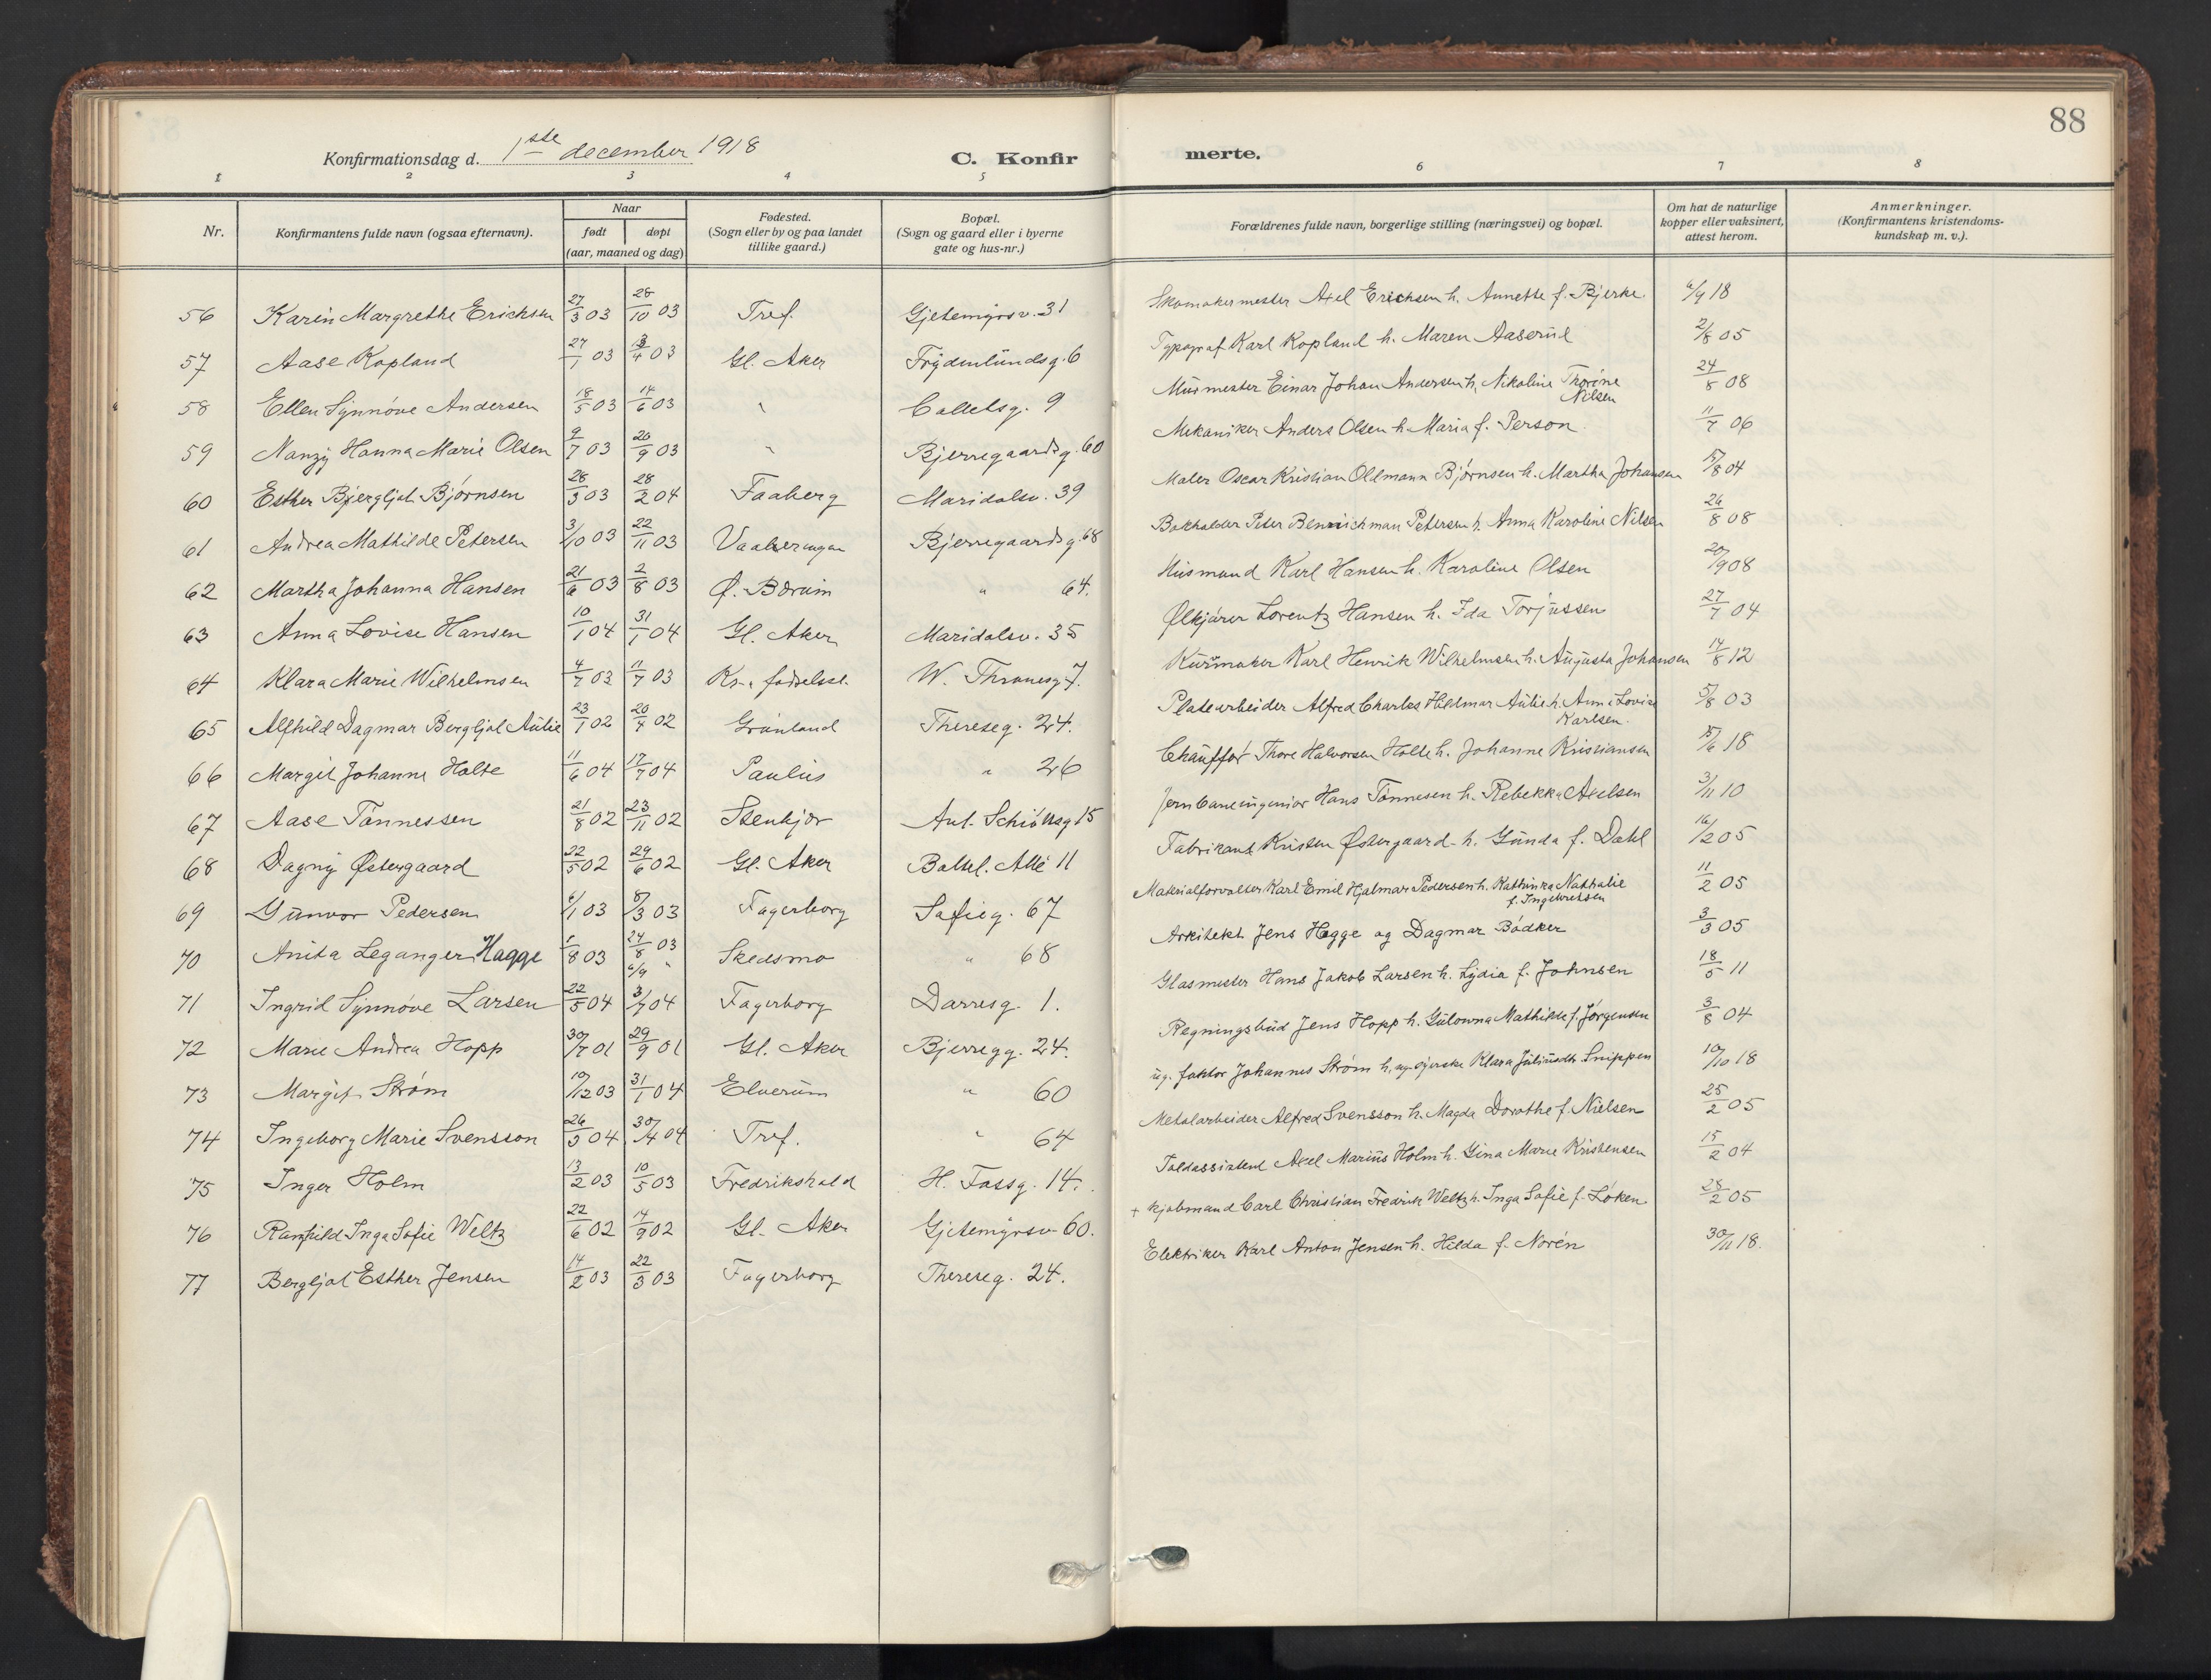 88
Konfirmationsdag d. 1ste december 1918
C. Konfir merte.
1 2 3 4 5 6 7 8
Nr.
Konfirmantens fulde navn (ogsaa efternavn).
Naar
født døpt
(aar, maaned og dag)
Fødested.
(Sogn eller by og paa landet
tillike gaard.)
Bopæl.
(Sogn og gaard eller i byerne
gate og hus-nr.)
Forældrenes fulde navn, borgerlige stilling (næringsvei) og bopæl.
Om hat de naturlige
kopper eller vaksinert,
attest herom.
Anmerkninger.
(Konfirmantens kristendoms-
kundskap m. v.).
56 Karin Margrethe Erichsen 27/3 03 28/10 03 Tref. Gjetemyrsv. 31 Skomakermester Axel Erichsen h. Annette f. Bjerke 6/9 18
57 Aase Kopland 27/1 03 13/4 03 Gl. Aker Frydenlundsg. 6 Typograf Karl Kopland h. Maren Aaserud 2/8 05
58 Ellen Synnöve Andersen 18/5 03 14/6 03 " Colletsg. 9 Murmester Einar Johan Andersen h. Nikoline Thorine Nilsen 24/8 08
59 Nanzy Hanna Marie Olsen 9/7 03 20/9 03 " Bjerregaardsg. 60 Mekaniker Anders Olsen h. Maria f. Person 11/7 06
60 Esther Bjergljot Bjørnsen 28/3 03 28/2 04 Faaberg Maridalsv. 39 Maler Oscar Kristian Oldmann Bjørnsen h. Martha Johansen 5/8 04
61 Andrea Mathilde Petersen 3/10 03 22/11 03 Vaalerengen Bjerregaardsg. 68 Bokholder Peter Petersen h. Anna Karoline Nilsen 26/8 08
62 Martha Johanna Hansen 21/6 03 2/8 03 Ø. Bærum " 64. Husmand Karl Hansen h. Karoline Olsen 20/9 08
63 Anna Lovise Hansen 10/1 04 31/1 04 Gl. Aker Maridalsv. 35 Ølkjører Lorentz Hansen h. Ida Torjussen 27/7 04
64 Klara Marie Wilhelmsen 4/7 03 11/7 03 Kr.a fødselsst. W. Thranesg 7. Kurvmaker Karl Henrik Wilhelmsen h. Augusta Johansen 14/8 12
65 Alfhild Dagmar Bergljot Aulie 23/1 02 20/4 02 Grönland Thereseg. 24. Platearbeider Alfred Charles Hildmar Aulie h. Anna Lovise Karlsen. 5/8 03
66 Margit Johanne Holte 11/6 04 17/7 04 Paulus " 26 Chauffør Thore Halvorsen Holte h. Johanne Kristiansen 15/6 18
67 Aase Tönnessen 21/8 02 23/11 02 Stenkjær Ant. Schiöttsg 15 Jernbaneingeniør Hans Tönnesen h. Rebekka Axelsen 3/11 10
68 Dagny Østergaard 22/5 02 29/6 02 Gl. Aker Baltsl. Allé 11 Fabrikant Kristen Østergaard h. Gunda f. Dahl 16/2 05
69 Gunvor Pedersen 6/1 03 8/3 03 Fagerborg Sofieg. 67 Materialforvalter Karl Emil Hjalmar Pedersen h. Kathinka Nathalie f. Ingebretsen 11/2 05
70 Anita Leganger Hagge 1/8 03 24/8 03 6/9 " Skedsmo " 68 Arkitekt Jens Hagge og Dagmar Bødker 3/3 05
71 Ingrid Synnöve Larsen 22/5 04 3/7 04 Fagerborg Darresg. 1. Glasmester Hans Jakob Larsen h. Lydia f. Johnsen 18/5 11
72 Marie Andrea Hopp 30/7 01 29/9 01 Gl. Aker Bjerregg. 24. Regningsbud Jens Hopp h. Gulowna Mathilde f. Jørgensen 3/8 04
73 Margit Strøm 10/12 03 31/1 04 Elverum " 60 ug. faktor Johannes Strøm h. ug. syerske Klara Juliusdtr Snippen 10/10 18
74 Ingeborg Marie Svensson 26/3 04 30/4 04 Tref. " 64 Metalarbeider Alfred Svensson h. Magda Dorothe f. Nielsen 25/2 05
75 Inger Holm 13/2 03 10/5 03 Fredrikshald H. Fossg. 14. Toldassistent Axel Marius Holm h. Gina Marie Kristensen 15/2 04
76 Ranhild Inga Sofie Weltz 22/6 02 14/9 02 Gl. Aker Gjetemyrsv 60. + kjøbmand Carl Christian Fredrik Weltz h. Inga Sofie f. Løken 28/2 05
77 Bergljot Esther Jensen 14/2 03 22/3 03 Fagerborg Thereseg. 24. Elektriker Karl Anton Jensen h. Hilda f. Norén 30/11 18.